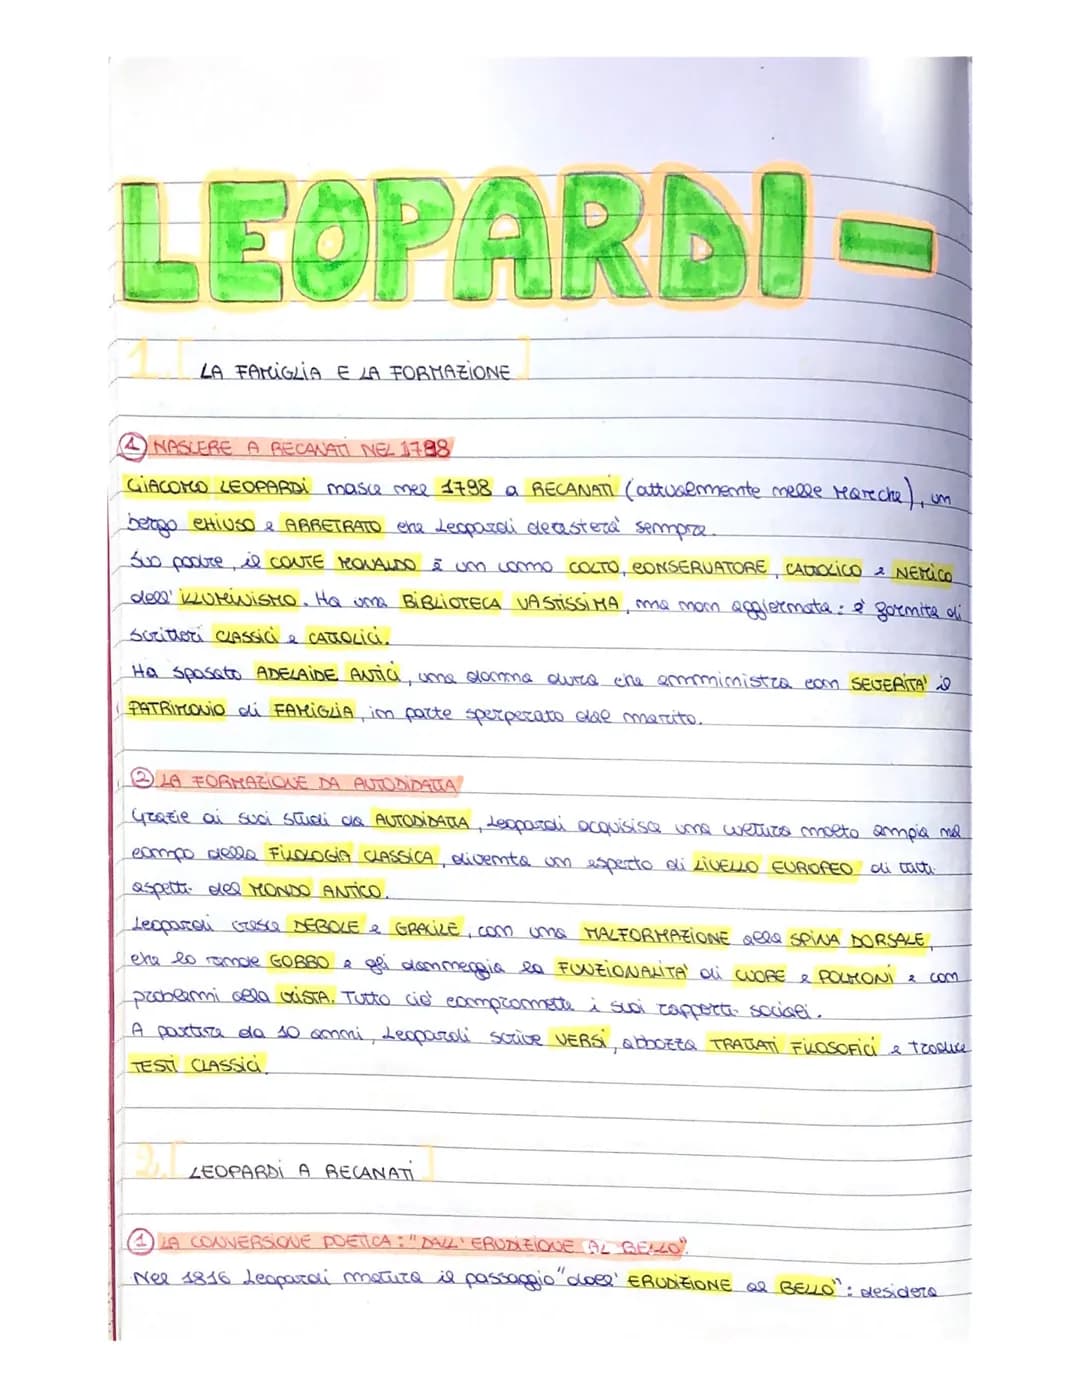 LEOPARDI -
1. [ LA FAMIGLIA E LA FORMAZIONE ]
1 NASCERE A RECANATI NEL 1798
GIACOMO LEOPARDI nasce nel 1798 a RECANATI (attualmente nelle Marche), un
borgo CHIUSO e ARRETRATO che Leopardi detesterà sempre.
Suo padre, il CONTE MONALDO è un uomo COLTO, CONSERVATORE, CATTOLICO e NEMICO
dell'ILLUMINISMO. Ha una BIBLIOTECA VASTISSIMA, ma non aggiornata: è fornita di
scrittori CLASSICI e CATTOLICI.
Ha sposato ADELAIDE ANTICI, una donna dura che amministra con SEVERITA' il
PATRIMONIO di FAMIGLIA, in parte sperperato dal marito.
2 LA FORMAZIONE DA AUTODIDATTA
Grazie ai suoi studi da AUTODIDATTA, Leopardi acquisisce una cultura molto ampia nel
campo della FILOLOGIA CLASSICA, diventa un esperto di LIVELLO EUROPEO di tutti
aspetti del MONDO ANTICO.
Leopardi cresce DEBOLE e GRACILE, con una MALFORMAZIONE alla SPINA DORSALE,
che lo rende GOBBO e gli danneggia la FUNZIONALITA' di CUORE e POLMONI e con
problemi alla VISTA. Tutto ciò compromette i suoi rapporti sociali.
A partire da 10 anni, Leopardi scrive VERSI, abbozza TRATTATI FILOSOFICI e traduce
TESTI CLASSICI.
2. [ LEOPARDI A RECANATI ]
1 LA CONVERSIONE POETICA: "DALL' ERUDIZIONE AL BELLO".
Nel 1816 Leopardi matura il passaggio "dall' ERUDIZIONE al BELLO": desidera